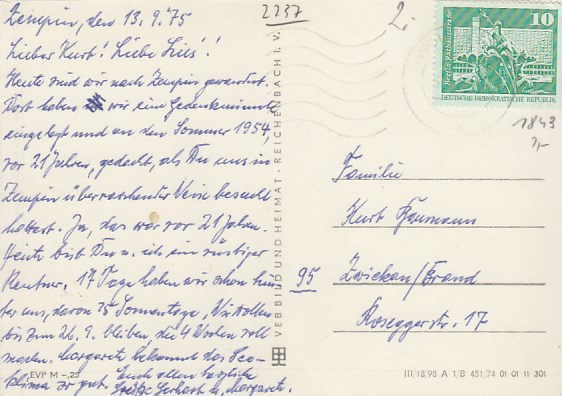 Zempin, den 13.9.75
Lieber Kurt! Liebe Lies!
Heute sind wir nach Zempin gewandert.
Dort haben wir eine Gedenkminute
eingelegt und an den Sommer 1954,
vor 21 Jahren, gedacht, als Du uns in
Zempin überraschender Weise besucht
hattest. Ja, das war vor 21 Jahren.
Heute bist Du u. ich ein rüstiger
Rentner. 17 Tage haben wir schon hin-
ter uns, davon 15 Sonnentage. Wir wollen
bis zum 26.9. bleiben, die 4 Wochen voll
machen. Margarete bekommt das See-
klima so gut. Euch allen herzliche
Grüße Gerhart u. Margarete.
EVP M -,25
2237
VEB BILD UND HEIMAT · REICHENBACH I. V.
2.
10
DEUTSCHE DEMOKRATISCHE REPUBLIK
1843
Familie
Kurt Baumann
95 Zwickau/Brand
Roseggerstr. 17
III/18/98 A 1/B 451/74 01 01 11 301